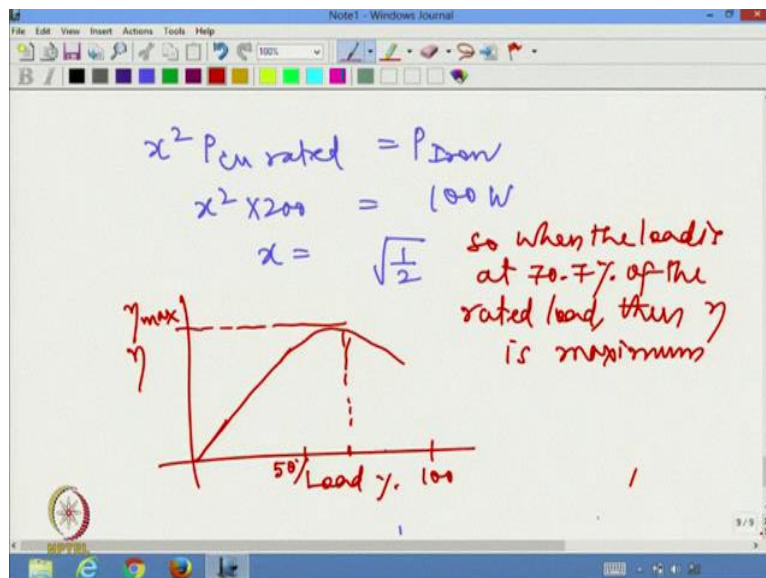 Note1 - Windows Journal
File Edit View Insert Actions Tools Help
100%
B I
x² P_cu rated = P_Iron
x² X200 = 100 W
x = √1/2
so when the load is
at 70.7% of the
rated load, then η
is maximum
ηmax
η
50% Load % 100
1
/
9/9
NPTEL